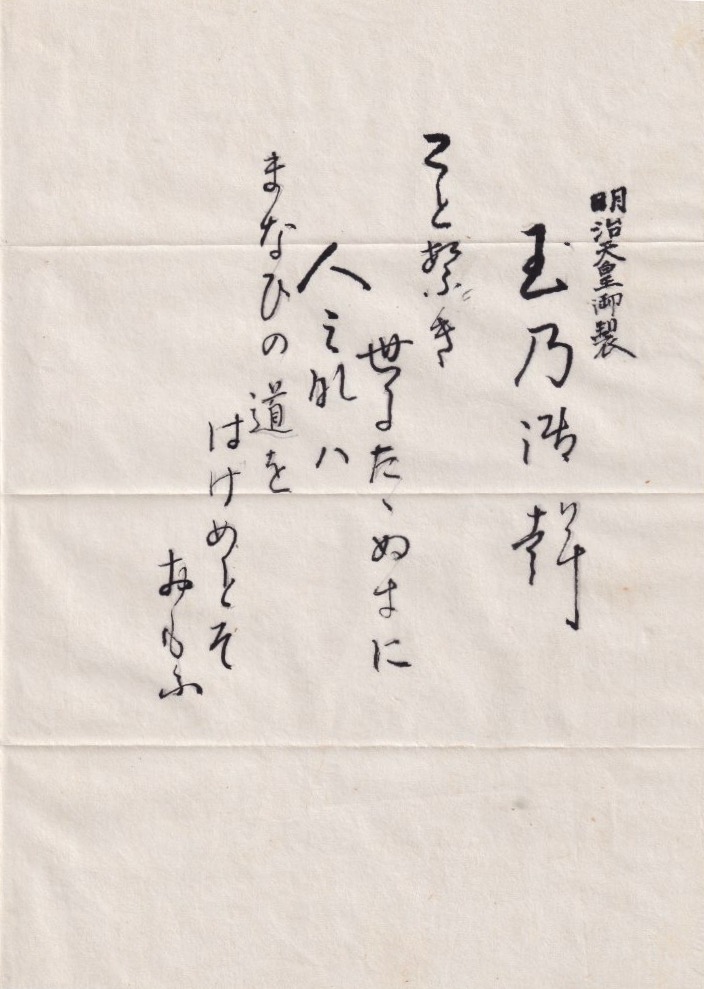 明治天皇御製
玉乃
こと繁き
世にたゝぬまに
人三那ハ
まなひの道を
はけめとそ
おもふ